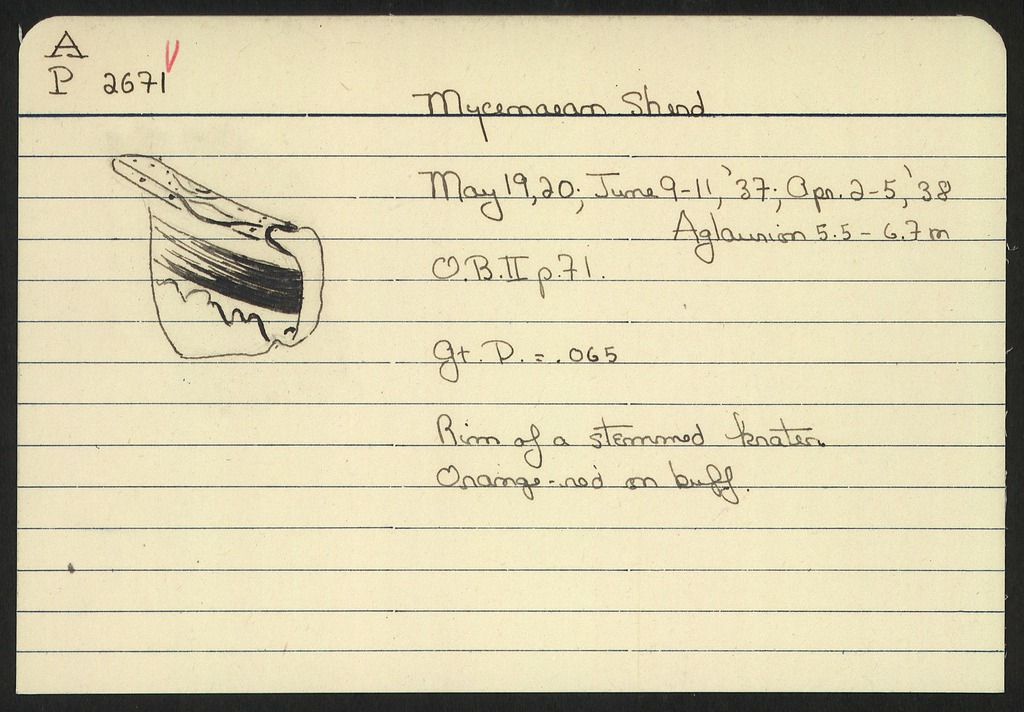 A
P 2671
Mycenaean Sherd
May 19, 20; June 9-11, '37; Apr. 2-5, '38
Aglaurion 5.5 - 6.7 m
O.B. II p. 71.
Gt. D. = .065
Rim of a stemmed krater.
Orange-red on buff.